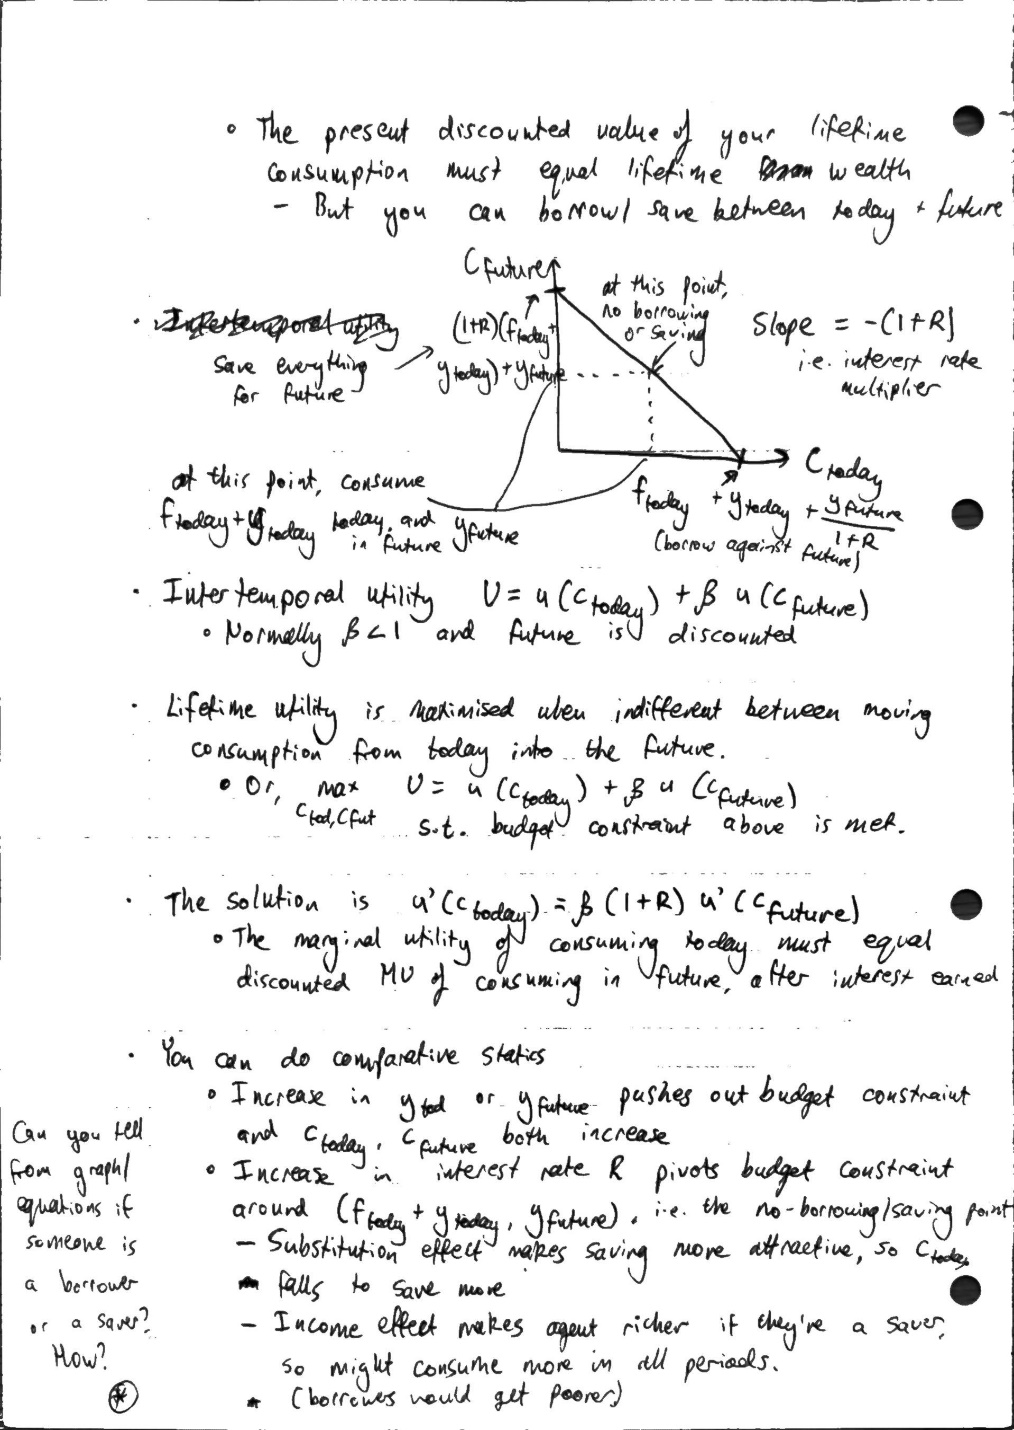 ◦ The present discounted value of your lifetime
consumption must equal lifetime wealth
– But you can borrow/save between today + future
C future
at this point,
no borrowing
or saving
· Intertemporal utility
(1+R)(f today +
y today) + y future
Slope = -(1+R)
i.e. interest rate
multiplier
save everything
for future
C today
at this point, consume
f today + y today today, and y future
in future
f today + y today + y future / 1+R
(borrow against future)
· Intertemporal utility U = u(c today) + β u(c future)
◦ Normally β<1 and future is discounted
· Lifetime utility is maximised when indifferent between moving
consumption from today into the future.
• Or, max U = u(c today) + β u(c future)
c tod, c fut s.t. budget constraint above is met.
· The solution is u'(c today) = β(1+R) u'(c future)
◦ The marginal utility of consuming today must equal
discounted MU of consuming in future, after interest earned
· You can do comparative statics
◦ Increase in y tod or y future pushes out budget constraint
and c today, c future both increase
◦ Increase in interest rate R pivots budget constraint
around (f today + y today, y future), i.e. the no-borrowing/saving point
– Substitution effect makes saving more attractive, so c today
falls to save more
– Income effect makes agent richer if they're a saver,
so might consume more in all periods.
(borrowers would get poorer)
Can you tell
from graph/
equations if
someone is
a borrower
or a saver?
How?
*